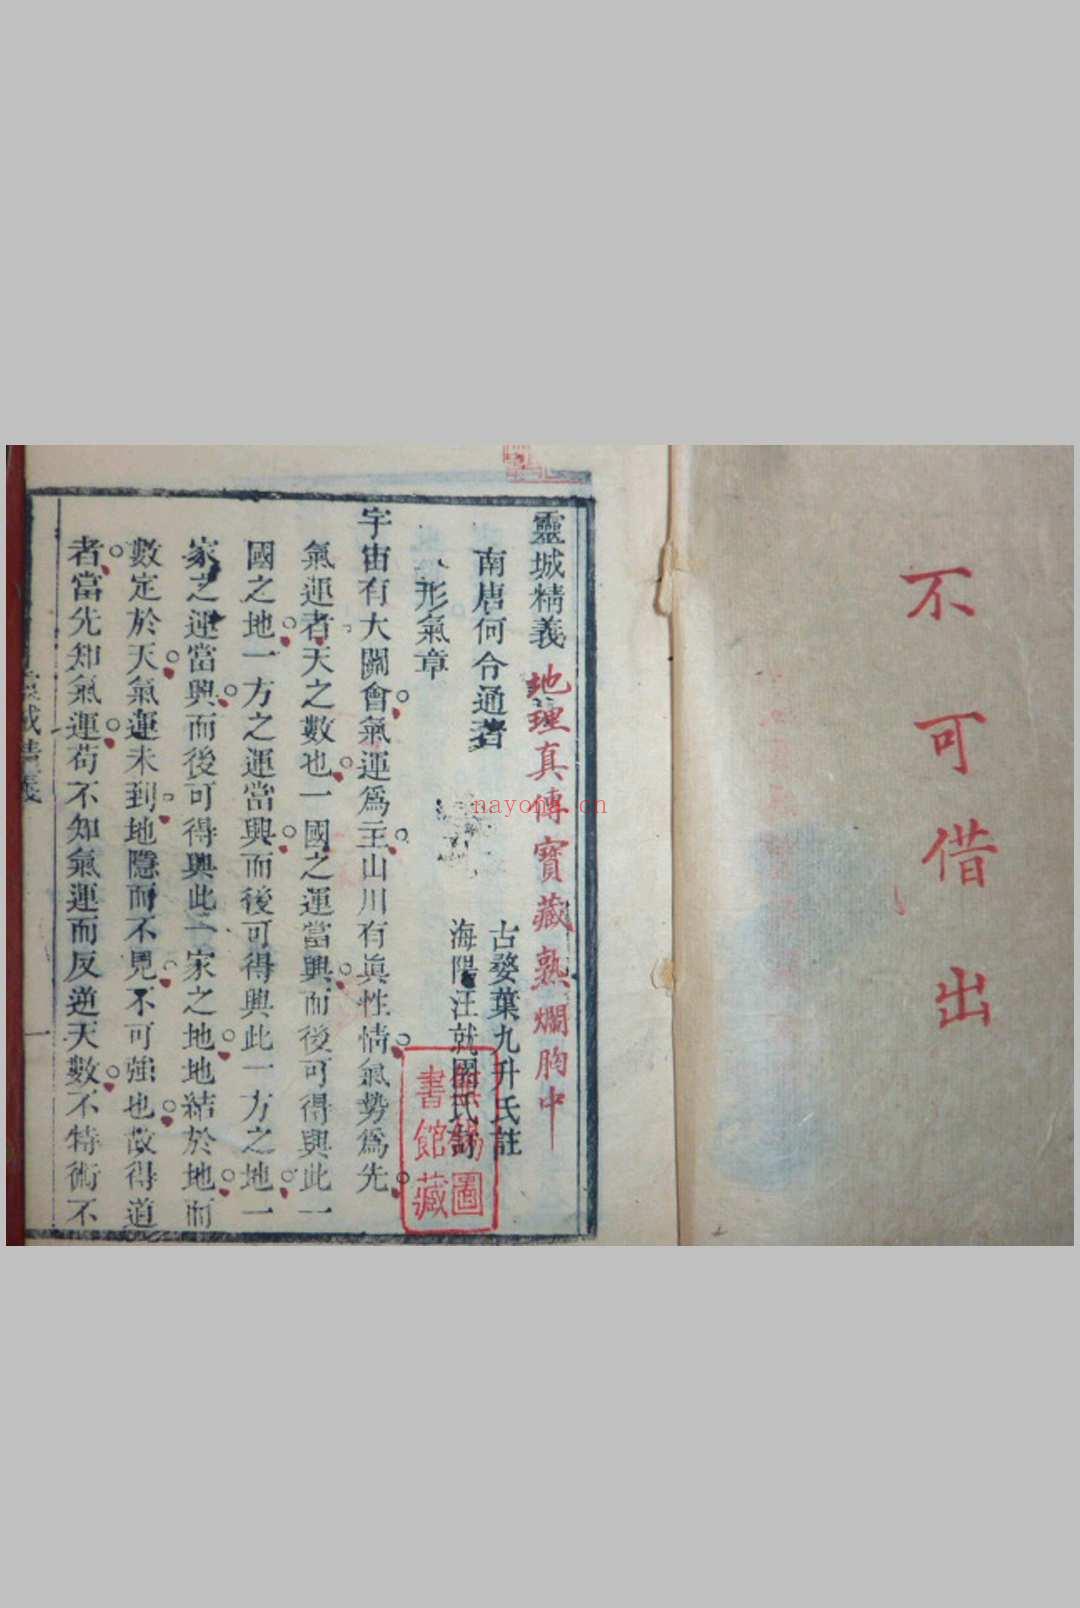 不可借出
靈城精義 地理真傳寶藏熟爛胸中
南唐何令通著
古婺葉九升氏註
海陽汪就圖氏訂
形氣章
宇宙有大關會氣運爲主山川有眞性情氣勢爲先
氣運者天之數也一國之運當興而後可得興此一
國之地一方之運當興而後可得興此一方之地一
家之運當興而後可得興此一家之地地結於地而
數定於天氣運未到地隱而不見不可強也故得道
者當先知氣運苟不知氣運而反逆天數不特術不
一
圖書館藏
nayona.cn